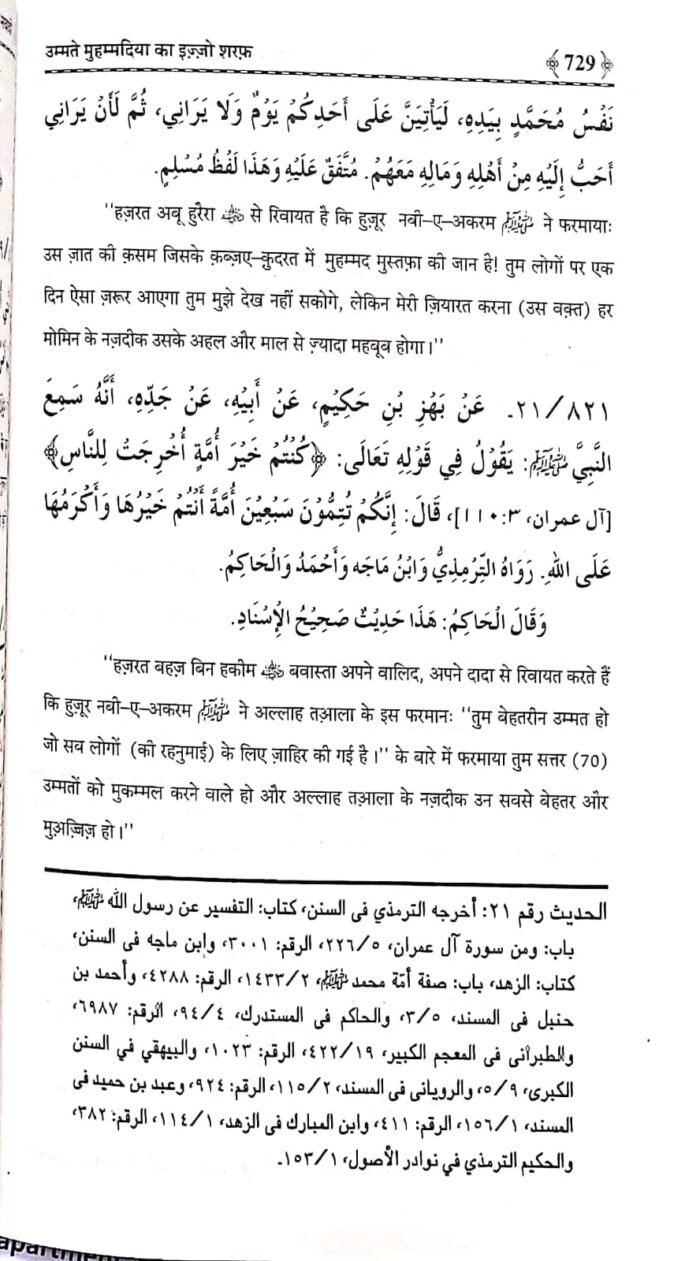 उम्मते मुहम्मदिया का इज़्ज़ो शरफ़
﴾729﴿
نَفْسُ مُحَمَّدٍ بِيَدِهِ، لَيَأْتِيَنَّ عَلَى أَحَدِكُمْ يَوْمٌ وَلَا يَرَانِي، ثُمَّ لَأَنْ يَرَانِي
أَحَبُّ إِلَيْهِ مِنْ أَهْلِهِ وَمَالِهِ مَعَهُمْ. مُتَّفَقٌ عَلَيْهِ وَهَذَا لَفْظُ مُسْلِمٍ.
''हज़रत अबू हुरैरा ؓ से रिवायत है कि हुज़ूर नबी-ए-अकरम ﷺ ने फरमायाः
उस ज़ात की क़सम जिसके क़ब्ज़ए-क़ुदरत में मुहम्मद मुस्तफ़ा की जान है! तुम लोगों पर एक
दिन ऐसा ज़रूर आएगा तुम मुझे देख नहीं सकोगे, लेकिन मेरी ज़ियारत करना (उस वक़्त) हर
मोमिन के नज़दीक उसके अहल और माल से ज़्यादा महबूब होगा।''
٢١/٨٢١. عَنْ بَهْزِ بْنِ حَكِيْمٍ، عَنْ أَبِيْهِ، عَنْ جَدِّهِ، أَنَّهُ سَمِعَ
النَّبِيَّ ﷺ: يَقُوْلُ فِي قَوْلِهِ تَعَالَى: ﴿كُنْتُمْ خَيْرَ أُمَّةٍ أُخْرِجَتْ لِلنَّاسِ﴾
[آل عمران، ٣:١١٠]، قَالَ: إِنَّكُمْ تُتِمُّوْنَ سَبْعِيْنَ أُمَّةً أَنْتُمْ خَيْرُهَا وَأَكْرَمُهَا
عَلَى اللهِ. رَوَاهُ التِّرْمِذِيُّ وَابْنُ مَاجَه وَأَحْمَدُ وَالْحَاكِمُ.
وَقَالَ الْحَاكِمُ: هَذَا حَدِيْثٌ صَحِيْحُ الْإِسْنَادِ.
''हज़रत बहज़ बिन हकीम ؓ बवास्ता अपने वालिद, अपने दादा से रिवायत करते हैं
कि हुज़ूर नबी-ए-अकरम ﷺ ने अल्लाह तआला के इस फरमानः ''तुम बेहतरीन उम्मत हो
जो सब लोगों (की रहनुमाई) के लिए ज़ाहिर की गई है।'' के बारे में फरमाया तुम सत्तर (70)
उम्मतों को मुकम्मल करने वाले हो और अल्लाह तआला के नज़दीक उन सबसे बेहतर और
मुअज़्ज़िज़ हो।''
الحديث رقم ٢١: أخرجه الترمذي فى السنن، كتاب: التفسير عن رسول الله ﷺ،
باب: ومن سورة آل عمران، ٢٢٦/٥، الرقم: ٣٠٠١، وابن ماجه فى السنن،
كتاب: الزهد، باب: صفة أمّة محمد ﷺ، ١٤٣٣/٢، الرقم: ٤٢٨٨، وأحمد بن
حنبل فى المسند، ٣/٥، والحاكم فى المستدرك، ٩٤/٤، الرقم: ٦٩٨٧،
والطبرانى فى المعجم الكبير، ٤٢٢/١٩، الرقم: ١٠٢٣، والبيهقي في السنن
الكبرى، ٥/٩، والرويانى فى المسند، ١١٥/٢، الرقم: ٩٢٤، وعبد بن حميد فى
المسند، ١٥٦/١، الرقم: ٤١١، وابن المبارك فى الزهد، ١١٤/١، الرقم: ٣٨٢،
والحكيم الترمذي في نوادر الأصول، ١٥٣/١.